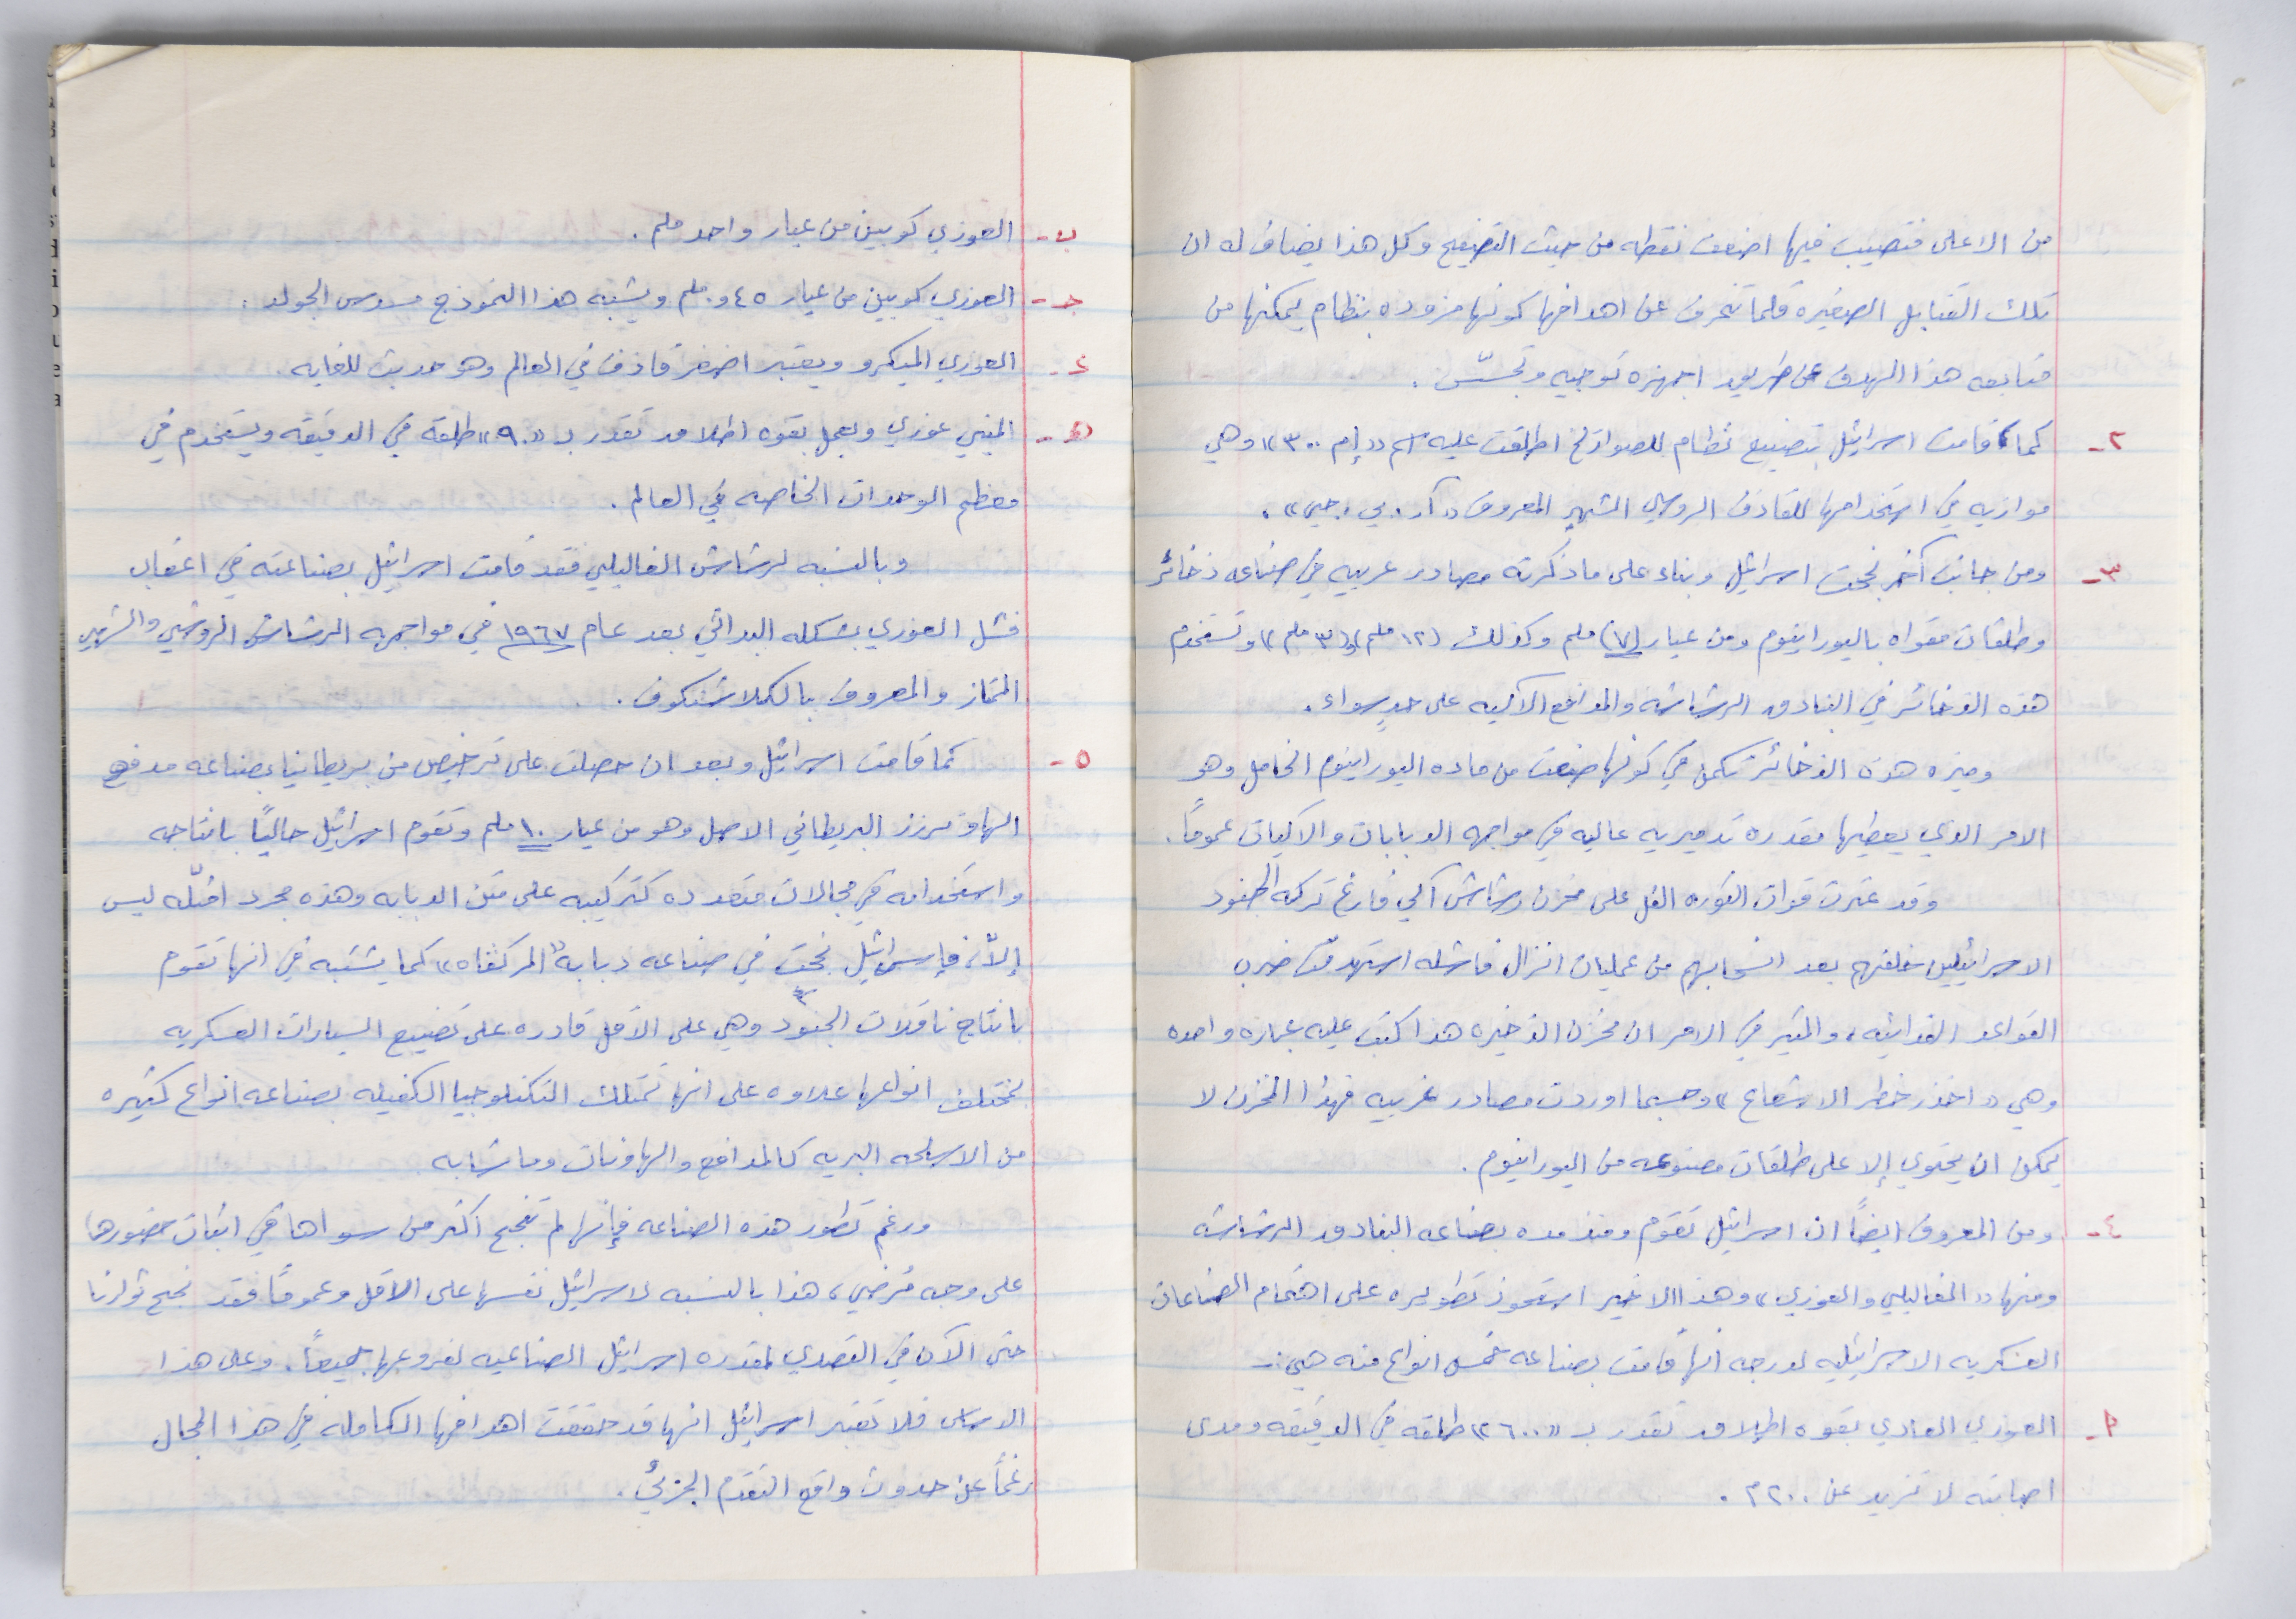 من الاعلى فتصيب فيها اضعف نقطه من حيث التصفيح وكل هذا يضاف له ان
تلك القنابل الصغيره قلما تنحرف عن اهدافها كونها مزوده بنظام يمكنها من
متابعه هذا الهدف عن طريق اجهزه توجيه وتحسّس .
٢- كما قامت اسرائيل بتصنيع نظام للصواريخ اطلقت عليه اسم «إم ٣٠٠» وهي
موازيه في استخدامها للقاذف الروسي الشهير المعروف «آر . بي . جي» .
٣- ومن جانب آخر نجحت اسرائيل وبناء على ما ذكرته مصادر عربيه في صناعه ذخائر
وطلقات مقواه باليورانيوم ومن عيار (٧) ملم وكذلك (١٢ ملم) و(٣٠ ملم) وتستخدم
هذه الذخائر في البنادق الرشاشه والمدافع الآليه على حدٍ سواء .
وميزه هذه الذخائر تكمن في كونها صنعت من ماده اليورانيوم الخامل وهو
الامر الذي يعطيها مقدره تدميريه عاليه في مواجهه الدبابات والآليات عموماً .
وقد عثرت قوات الثوره على مخزن رشاش آلي فارغ تركه الجنود
الاسرائيليين خلفهم بعد انسحابهم من عمليات انزال فاشله استهدفت ضرب
القواعد الفدائيه ، والمثير في الامر ان مخزن الذخيره هذا كتب عليه عباره واحده
وهي «احذر خطر الاشعاع» وحسبما اوردت مصادر غربيه فهذا المخزن لا
يمكن ان يحتوي إلا على طلقات مصنوعه من اليورانيوم .
٤- ومن المعروف ايضاً ان اسرائيل تقوم ومنذ مده بصناعه البنادق الرشاشه
ومنها «الغاليلي والعوزي» وهذا الاخير استحوذ تطويره على اهتمام الصناعات
العسكريه الاسرائيليه لدرجه أنها قامت بصناعه خمس انواع منه هي :-
أ- العوزي العادي بقوه اطلاق تقدر بـ «٦٠٠» طلقه في الدقيقه ومدى
اصابته لا تزيد عن ٢٠٠م .
ب- العوزي كوبين من عيار واحد ملم .
جـ- العوزي كوبين من عيار ٤٥و. ملم ويشبه هذا النموذج مسدس الجولد .
د- العوزي الميكرو ويعتبر اصغر قاذف في العالم وهو حديث للغايه .
هـ- الميني عوزي ويعمل بقوه اطلاق تقدر بـ «٩٠٠» طلقة في الدقيقه ويستخدم في
معظم الوحدات الخاصه في العالم .
وبالنسبه لرشاش الغاليلي فقد قامت اسرائيل بصناعته في اعقاب
فشل العوزي بشكله البدائي بعد عام ١٩٦٧ في مواجهه الرشاش الروسي والشهير
الممتاز والمعروف بالكلاشنكوف .
٥- كما قامت اسرائيل وبعد ان حصلت على ترخيص من بريطانيا بصناعه مدفع
الهاوتزرز البريطاني الاصل وهو من عيار ١٠ ملم وتقوم اسرائيل حالياً بانتاجه
واستخدامه في مجالات متعدده كتركيبه على متن الدبابه وهذه مجرد امثله ليس
إلاّ ، فإسرائيل نجحت في صناعه دبابة «المركفاه» كما يشتبه في انها تقوم
بانتاج ناقلات الجنود وهي على الاقل قادره على تصنيع السيارات العسكريه
بمختلف انواعها علاوه على انها تمتلك التكنلوجيا الكفيله بصناعه انواع كثيره
من الاسلحه البريه كالمدافع والهاونات وما شابه
ورغم تطور هذه الصناعه فإنها لم تنجح اكثر من سواها في اثبات حضورها
على وجه مُرضي ، هذا بالنسبه لاسرائيل نفسها على الاقل وعموماً فقد نجح ثوارنا
حتى الآن في التصدي لمقدره اسرائيل الصناعيه لفروعها جميعاً . وعلى هذا
الاساس فلا تعتبر اسرائيل انها قد حققت اهدافها الكامله في هذا المجال
رغماً عن حدوث واقع التقدم الجزئي .